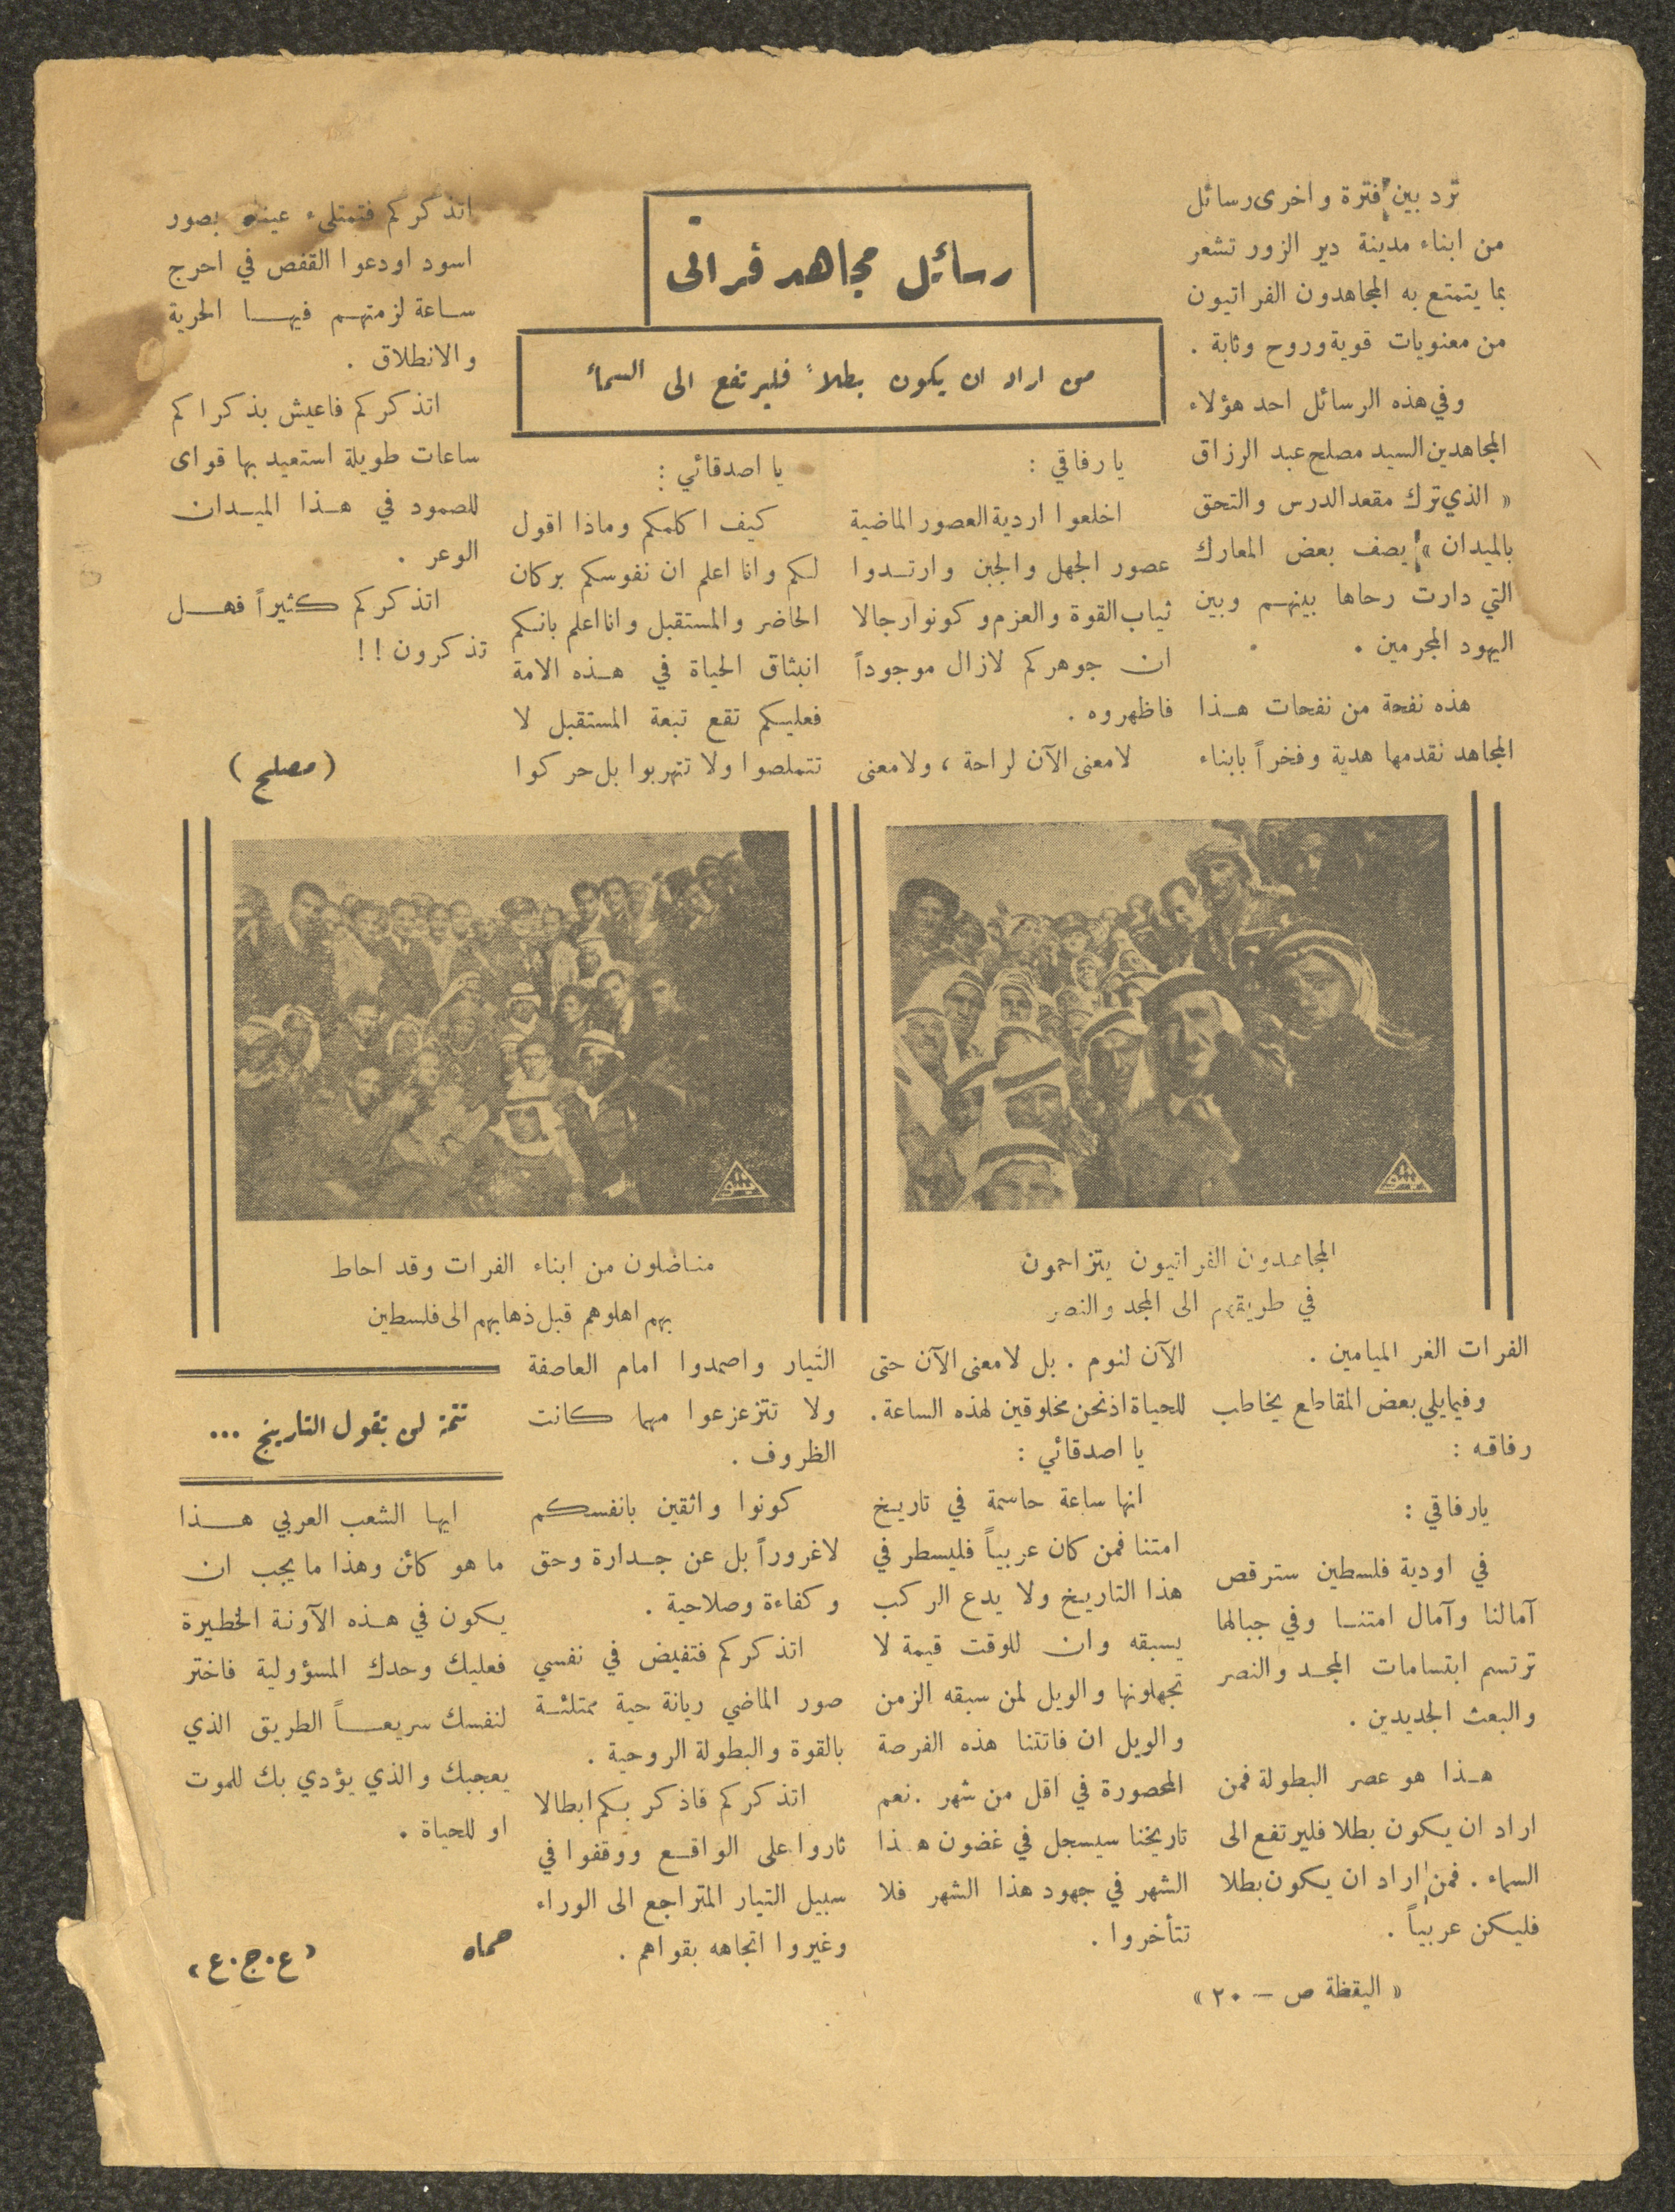 رسائل مجاهد فراتي
من اراد ان يكون بطلاً فليرتفع الى السماء
ترد بين فترة واخرى رسائل
من ابناء مدينة دير الزور تشعر
بما يتمتع به المجاهدون الفراتيون
من معنويات قوية وروح وثابة .
وفي هذه الرسائل احد هؤلاء
المجاهدين السيد مصلح عبد الرزاق
« الذي ترك مقعد الدرس والتحق
بالميدان » يصف بعض المعارك
التي دارت رحاها بينهم وبين
اليهود المجرمين .
هذه نفحة من نفحات هذا
المجاهد نقدمها هدية وفخراً بابناء
الفرات الغر الميامين .
وفيمايلي بعض المقاطع يخاطب
رفاقه :
يارفاقي :
في اودية فلسطين سترقص
آمالنا وآمال امتنا وفي جبالها
ترتسم ابتسامات المجد والنصر
والبعث الجديدين .
هذا هو عصر البطولة فمن
اراد ان يكون بطلا فليرتفع الى
السماء . فمن اراد ان يكون بطلا
فليكن عربياً .
يا رفاقي :
اخلعوا اردية العصور الماضية
عصور الجهل والجبن وارتدوا
ثياب القوة والعزم وكونوا رجالا
ان جوهركم لازال موجوداً
فاظهروه .
لامعنى الآن لراحة ، ولا معنى
الآن لنوم . بل لامعنى الآن حتى
للحياة اذنحن مخلوقين لهذه الساعة .
يا اصدقائي :
انها ساعة حاسمة في تاريخ
امتنا فمن كان عربياً فليسطر في
هذا التاريخ ولا يدع الركب
يسبقه وان للوقت قيمة لا
تجهلونها والويل لمن سبقه الزمن
والويل ان فاتتنا هذه الفرصة
المحصورة في اقل من شهر . نعم
تاريخنا سيسجل في غضون هذا
الشهر في جهود هذا الشهر فلا
تتأخروا .
يا اصدقائي :
كيف اكلمكم وماذا اقول
لكم وانا اعلم ان نفوسكم بركان
الحاضر والمستقبل وانا اعلم بانكم
انبثاق الحياة في هذه الامة
فعليكم تقع تبعة المستقبل لا
تتملصوا ولا تتهربوا بل حركوا
التيار واصمدوا امام العاصفة
ولا تتزعزعوا مهما كانت
الظروف .
كونوا واثقين بانفسكم
لاغروراً بل عن جدارة وحق
وكفاءة وصلاحية .
اتذكركم فتفيض في نفسي
صور الماضي ريانة حية ممتلئة
بالقوة والبطولة الروحية .
اتذكركم فاذكر بكم ابطالا
ثاروا على الواقع ووقفوا في
سبيل التيار المتراجع الى الوراء
وغيروا اتجاهه بقواهم .
اتذكركم فتمتلىء بصور
اسود اودعوا القفص في احرج
ساعة لزمتهم فيها الحرية
والانطلاق .
اتذكركم فاعيش بذكراكم
ساعات طويلة استعيد بها قواى
للصمود في هذا الميدان
الوعر .
اتذكركم كثيراً فهل
تذكرون ! !
( مصلح )
المجاهدون الفراتيون يتزاحمون
في طريقهم الى المجد والنصر
مناضلون من ابناء الفرات وقد احاط
بهم اهلوهم قبل ذهابهم الى فلسطين
تتمة لن يقول التاريخ ...
ايها الشعب العربي هذا
ما هو كائن وهذا ما يجب ان
يكون في هذه الآونة الخطيرة
فعليك وحدك المسؤولية فاختر
لنفسك سريعاً الطريق الذي
يعجبك والذي يؤدي بك للموت
او للحياة .
حماه « ع . ج . ع »
« اليقظة ص — ٢٠ »